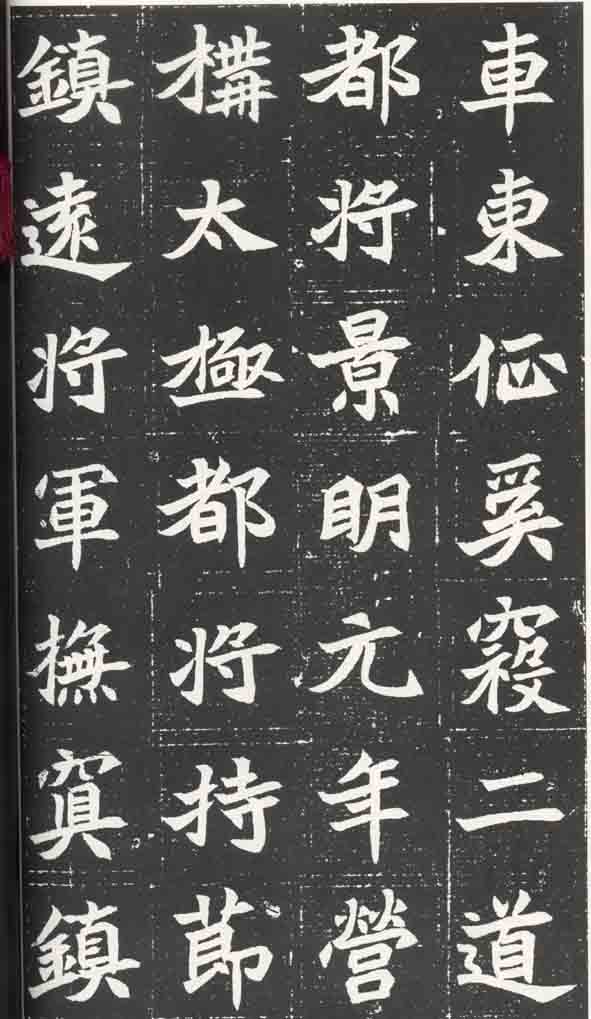 車東征奚寇二道
都将景明元年營
構太極都将持節
鎮遠将軍撫寘鎮